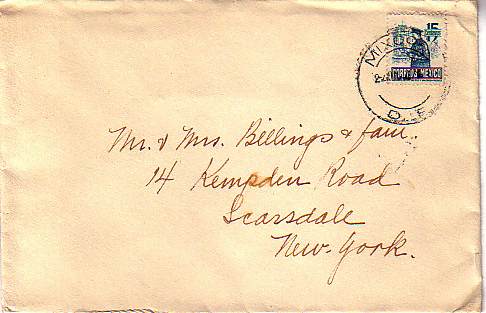 15
MIXCOAC
CORREOS MEXICO
D.F.
Mr. & Mrs. Billings & fam.
14 Kempden Road
Scarsdale
New-York.